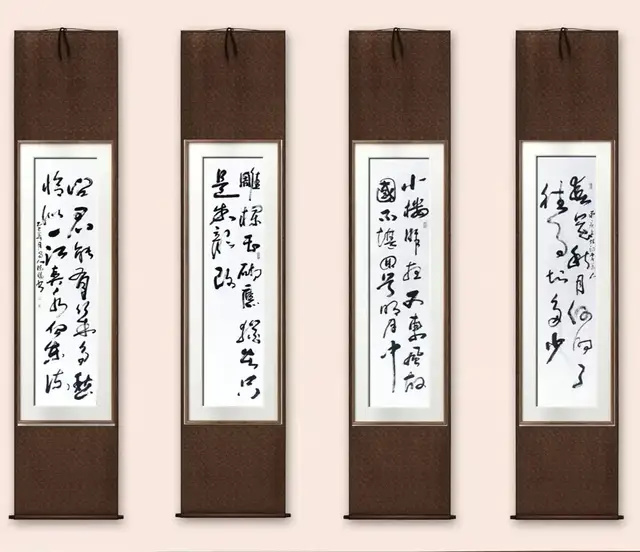 春花秋月何时了
往事知多少
小樓昨夜又東風故
國不堪回首明月中
雕欄玉砌應猶在只
是朱顏改
问君能有幾多愁
恰似一江春水向東流